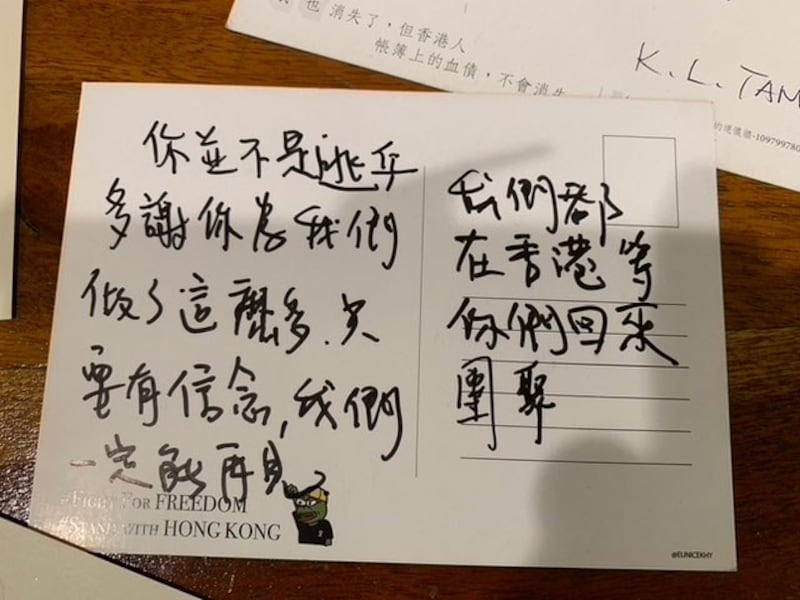 也 消失了，但香港人
帳簿上的血債，不會消失
K. L. TAM
的連儂牆-109799780
你並不是逃兵
多謝你為我們
做了這麼多.只
要有信念,我們
一定能再見
#FIGHT FOR FREEDOM
#STAND WITH HONG KONG
我們都
在香港等
你們回來
團聚
@EUNICEKHY